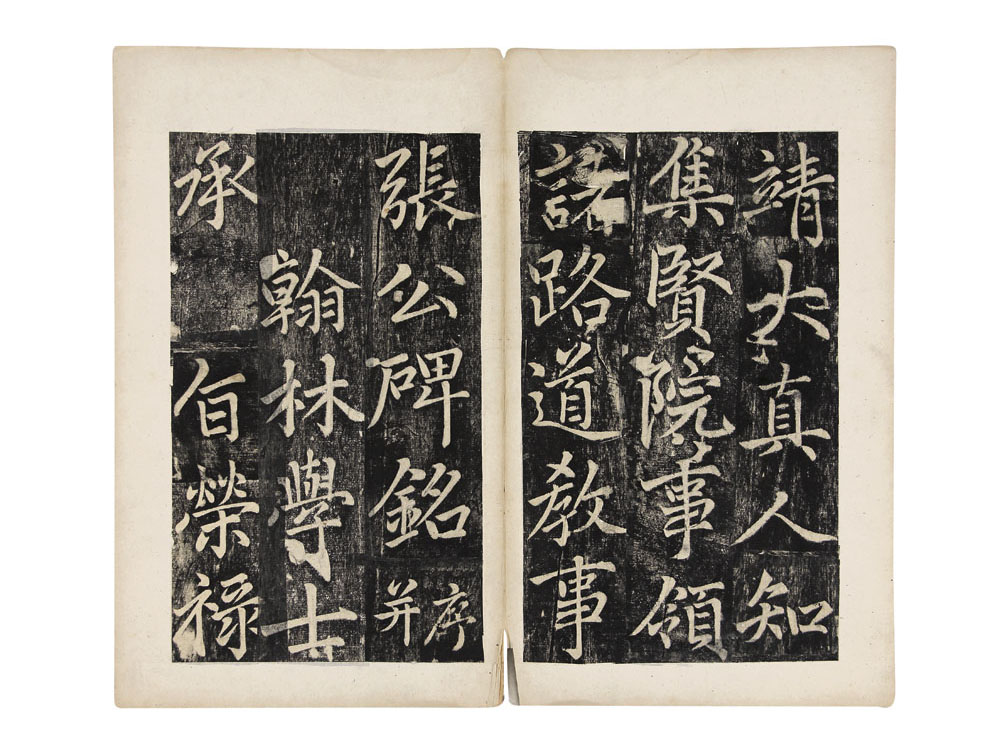 靖大真人知
集賢院事領
諸路道教事
張公碑銘并序
翰林學士
承旨榮祿